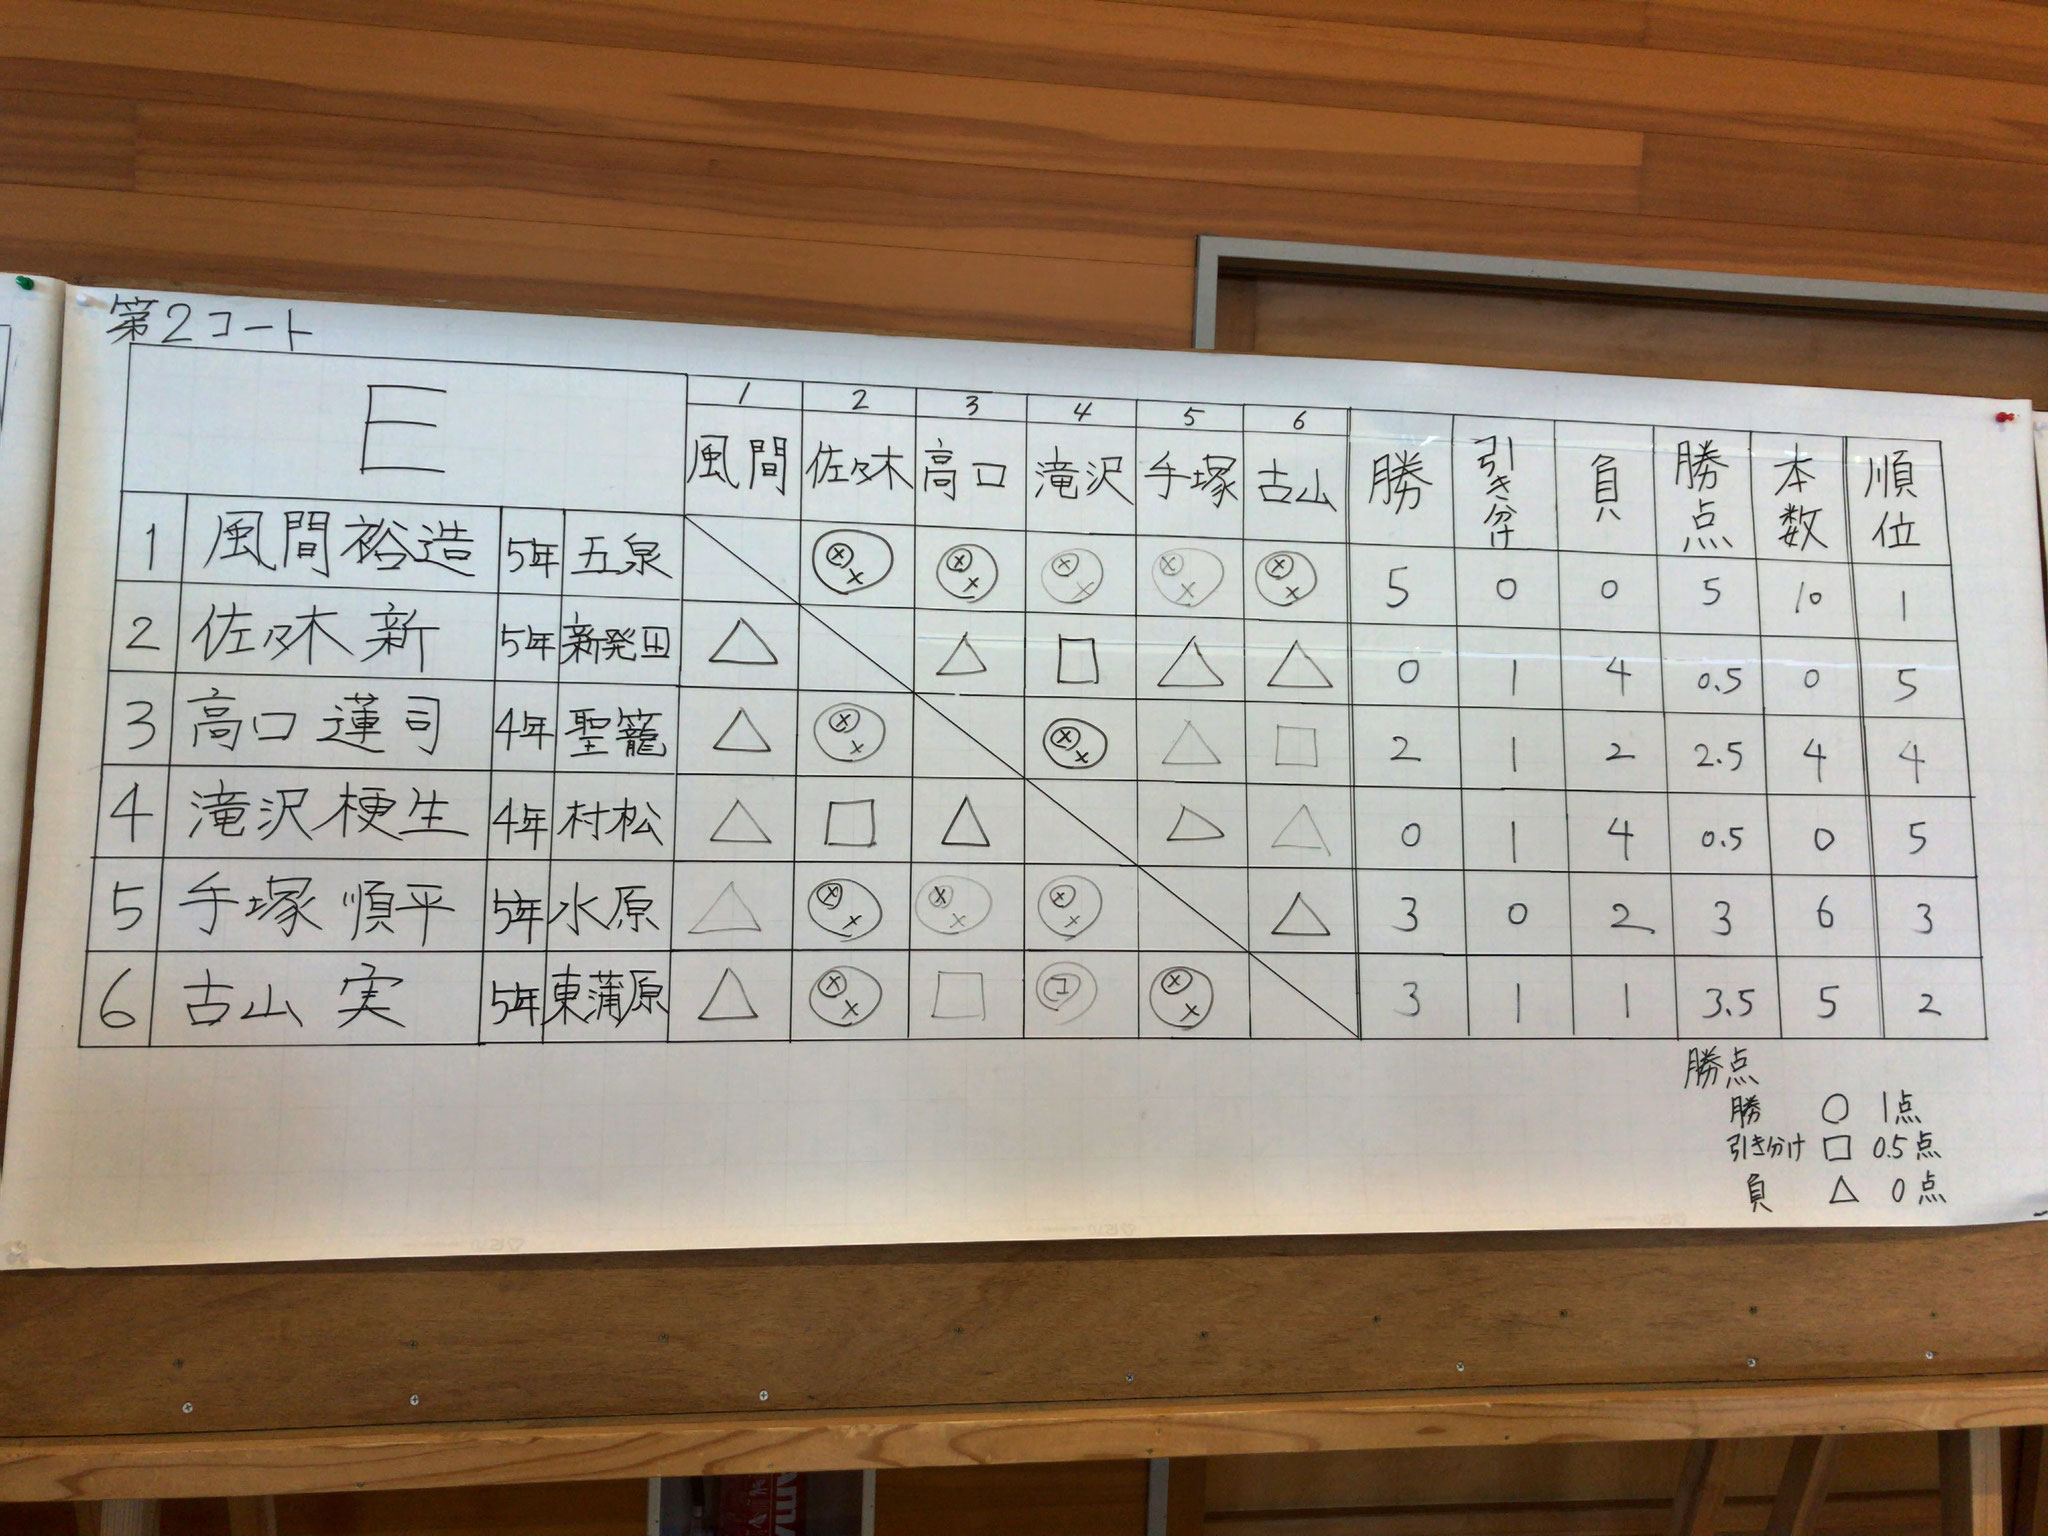 第2コート
E 1 2 3 4 5 6
風間 佐々木 高口 滝沢 手塚 古山 勝 引き分け 負 勝点 本数 順位
1 風間裕造 5年 五泉 × × × × × × × × × × 5 0 0 5 10 1
2 佐々木新 5年 新発田 △ △ □ △ △ 0 1 4 0.5 0 5
3 高口蓮司 4年 聖籠 △ × × × × △ □ 2 1 2 2.5 4 4
4 滝沢梗生 4年 村松 △ □ △ △ △ 0 1 4 0.5 0 5
5 手塚順平 5年 水原 △ × × × × × × △ 3 0 2 3 6 3
6 古山実 5年 東蒲原 △ × × □ 1 × × 3 1 1 3.5 5 2
勝点
勝 ○ 1点
引き分け □ 0.5点
負 △ 0点